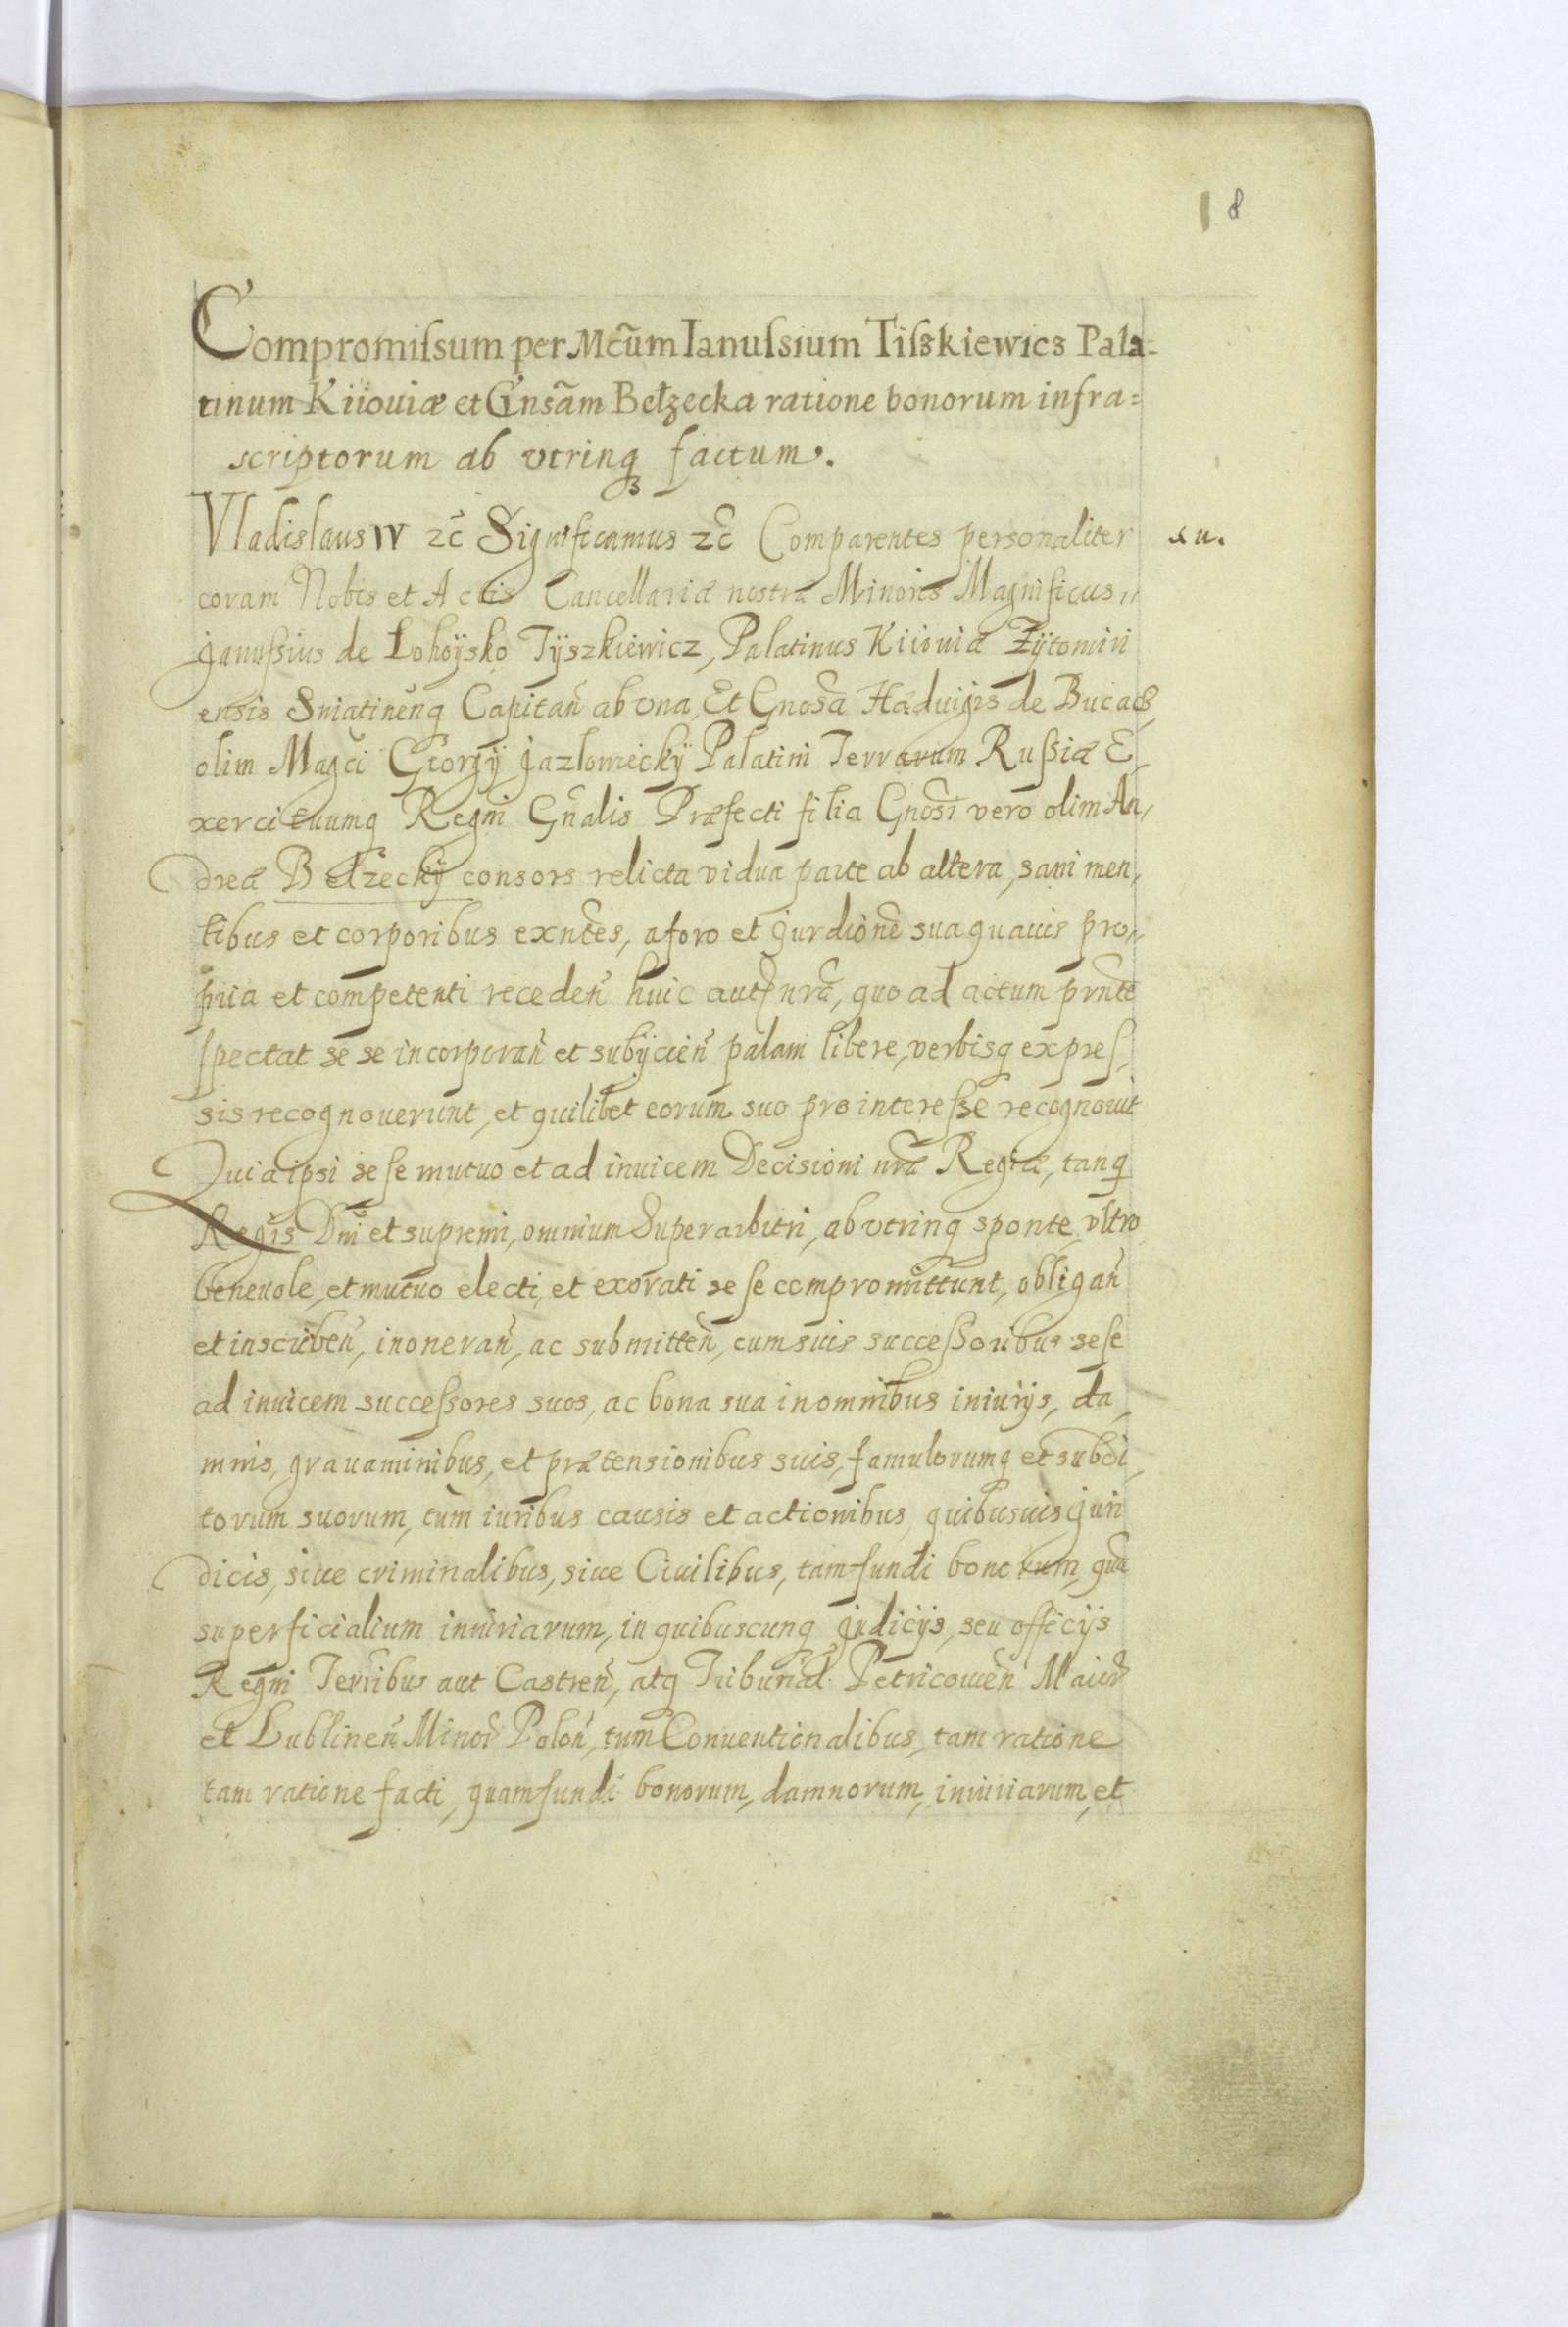 8
Compromissum per Mcũm Ianussium Tisskiewics Pala=
tinum Kiiouiæ et Gnsãm Bełzecka ratione bonorum infra=
scriptorum ab vtrinq factum.
Vladislaus IV zc̃ Significamus zc̃ Comparentes personaliter
coram Nobis et Actis Cancellariæ nostræ Minoris Magnificus,,
Janussius de Łohoÿsko Tÿszkiewicz, Palatinus Kiiouiæ Zÿtomiri
ensis Sniatineñq Capitañ ab vna, Et Gnos̃a Hæduigis de Bucacz,
olim Mag̃ci Georgÿ Jazlowieckÿ Palatini Terrarum Russiæ E,
xercituumq Regni Gñalis Præfecti filia Gnos̃i vero olim An,
dreæ Bełzeckÿ consors relicta vidua parte ab altera, sani men,
tibus et corporibus exñtes, a foro et Jurdioñe sua quauis pro,,
pria et competenti recedeñ huic aut nrã, quo ad actum prñte
spectat se se incorporañ et subijcieñ palam libere, verbisq expres,
sis recognouerunt, et quilibet eorum suo pro interesse recognouit
Quia ipsi sese mutuo et ad inuicem Decisioni nrã Regiæ, tanq
Regis Dñi et supremi, omnium Superarbitri, ab vtrinq sponte, vltro
beneuole, et mutuo electi, et exorati sese compromittunt, obligañ
et inscribeñ, inonerañ, ac submitteñ, cum suis successoribus sese
ad inuicem successores suos, ac bona sua in omnibus iniurijs, da,
mnis, grauaminibus, et prætensionibus suis, famulorumq et subdi,
torum suorum, tùm iuribus causis et actionibus, quibusuis Juri
dicis, siue criminalibus, siue Ciuilibus, tam fundi bonorum, quã
superficialium iniuriarum, in quibuscunq Judicijs, seu officijs
Regni Terribus aut Castreñ, atq Tribunal. Petricouieñ Maior̃
et Lublineñ Minor̃ Poloñ, tum Conuentionalibus, tam ratione
tam ratione facti, quam fundi bonorum, damnorum, iniuriarum, et